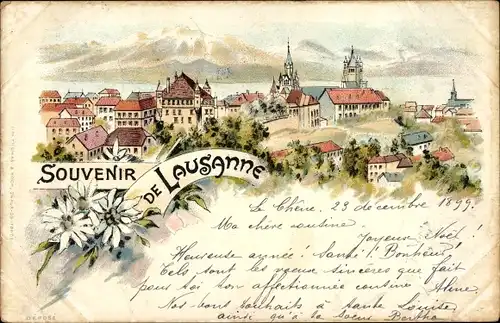 SOUVENIR
DE LAUSANNE
Le Chêne, 23 décembre 1899.
Ma chère cousine.
Joyeux Noël!
Heureuse année! Santé! Bonheur!
Tels sont les voeux sincères que fait
pour toi ton affectionnée cousine Aline
Nos bons souhaits à tante Louise
ainsi qu'à ta soeur Berthe